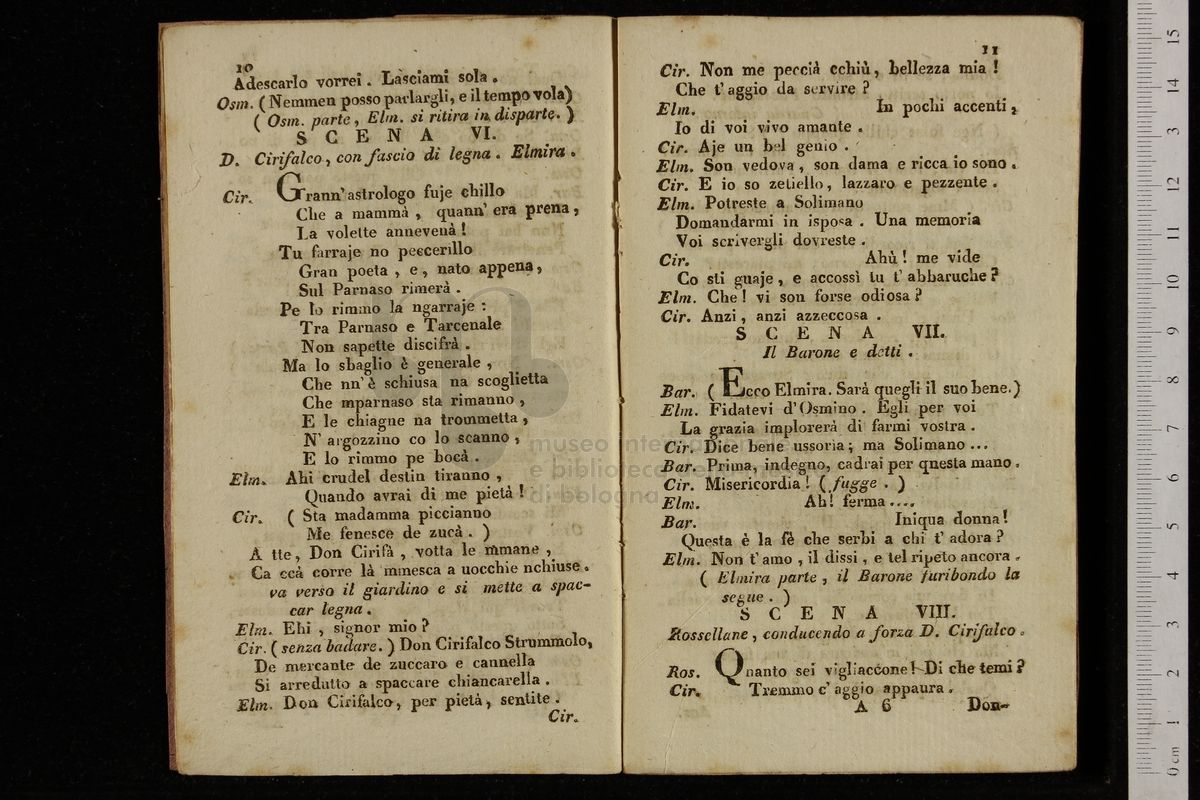 10
Adescarlo vorrei. Lasciami sola.
Osm. (Nemmen posso parlargli, e il tempo vola)
( Osm. parte, Elm. si ritira in disparte. )
SCENA VI.
D. Cirifalco, con fascio di legna. Elmira.
Cir. Grann' astrologo fuje chillo
Che a mammà, quann' era prena,
La volette annevenà!
Tu farraje no peccerillo
Gran poeta, e, nato appena,
Sul Parnaso rimerà.
Pe lo rimmo la ngarraje:
Tra Parnaso e Tarcenale
Non sapette discifrà.
Ma lo sbaglio è generale,
Che nn'è schiusa na scoglietta
Che mparnaso sta rimanno,
E le chiagne na trommetta,
N' argozzino co lo scanno,
E lo rimmo pe bocà.
Elm. Ahi crudel destin tiranno,
Quando avrai di me pietà!
Cir. ( Sta madamma piccianno
Me fenesce de zucà. )
A tte, Don Cirifà, votta le mmane,
Ca ccà corre là mmesca a uocchie nchiuse.
va verso il giardino e si mette a spac-
car legna.
Elm. Ehi, signor mio?
Cir. (senza badare.) Don Cirifalco Strummolo,
De mercante de zuccaro e cannella
Si arredutto a spaccare chiancarella.
Elm. Don Cirifalco, per pietà, sentite.
Cir.
11
Cir. Non me peccià cchiù, bellezza mia!
Che t'aggio da servire?
Elm. In pochi accenti,
Io di voi vivo amante.
Cir. Aje un bel genio.
Elm. Son vedova, son dama e ricca io sono.
Cir. E io so zetiello, lazzaro e pezzente.
Elm. Potreste a Solimano
Domandarmi in isposa. Una memoria
Voi scrivergli dovreste.
Cir. Ahù! me vide
Co sti guaje, e accossì tu t'abbaruche?
Elm. Che! vi son forse odiosa?
Cir. Anzi, anzi azzeccosa.
SCENA VII.
Il Barone e detti.
Bar. ( Ecco Elmira. Sarà quegli il suo bene.)
Elm. Fidatevi d'Osmino. Egli per voi
La grazia implorerà di farmi vostra.
Cir. Dice bene ussoria; ma Solimano...
Bar. Prima, indegno, cadrai per qnesta mano.
Cir. Misericordia! ( fugge. )
Elm. Ah! ferma....
Bar. Iniqua donna!
Questa è la fè che serbi a chi t'adora?
Elm. Non t'amo, il dissi, e tel ripeto ancora.
( Elmira parte, il Barone furibondo la
segue. )
SCENA VIII.
Rossellane, conducendo a forza D. Cirifalco.
Ros. Qnanto sei vigliaccone! Di che temi?
Cir. Tremmo c'aggio appaura.
A 6 Don-
museo internazionale
e biblioteca della musica
di bologna
0 cm 1 2 3 4 5 6 7 8 9 10 11 12 13 14 15